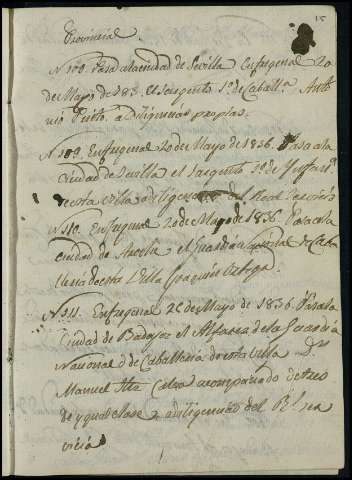 15
Provincial
N. 108. Pasa a la ciudad de Sevilla En fregenal 20
de Mayo de 183 el Sargento 1º de Caballª Anto
nio Pinto. a diligencias propias.
N. 109. En fregenal 20 de Mayo de 1836. Pasa a la
ciudad de Sevilla el Sargento de
de esta villa a diligencias del Real servicio
N. 110. En fregenal 20 de Mayo de 1836. Pasa a la
ciudad de el Guardia Nacional de Caba
lleria de esta Villa Joaquin Ortega.
N. 111. En fregenal 26 de Mayo de 1836. Pasa a la
Ciudad de Badajoz el Alferez de la Guardia
Nacional de Caballeria de esta villa Dn.
Manuel acompañado de tres
de ygual clase a diligencias del Rl. ser
vicio